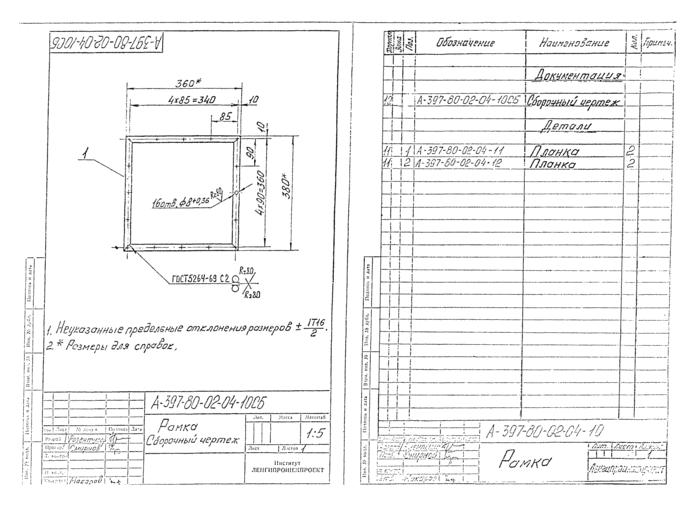 А-397-80-02-04-10СБ
360*
4x85=340
10
85
10
90
4x90=360
380*
1
16отв. ф8+0,36
Rz80
ГОСТ5264-69 С2
Rz80
Rz80
1. Неуказанные предельные отклонения размеров ± IT16/2.
2.* Размеры для справок.
А-397-80-02-04-10СБ
Рамка
Сборочный чертеж
Лит.
Масса
Масштаб
1:5
Лист
Листов 1
Институт
ЛЕНГИПРОИНЖПРОЕКТ
№ докум.
Подпись
Дата
Смирнов
Макаров
Подпись и дата
Инв. № дубл.
Взам. инв. №
Подпись и дата
Инв. № подл.
Формат
Зона
Поз.
Обозначение
Наименование
Кол.
Примеч.
Документация
А-397-80-02-04-10СБ Сборочный чертеж
Детали
11 1 А-397-80-02-04-11 Планка 2
11 2 А-397-80-02-04-12 Планка 2
Подпись и дата
Инв. № дубл.
Взам. инв. №
Подпись и дата
Инв. № подл.
А-397-80-02-04-10
Рамка
Лит.
Лист
Листов
1